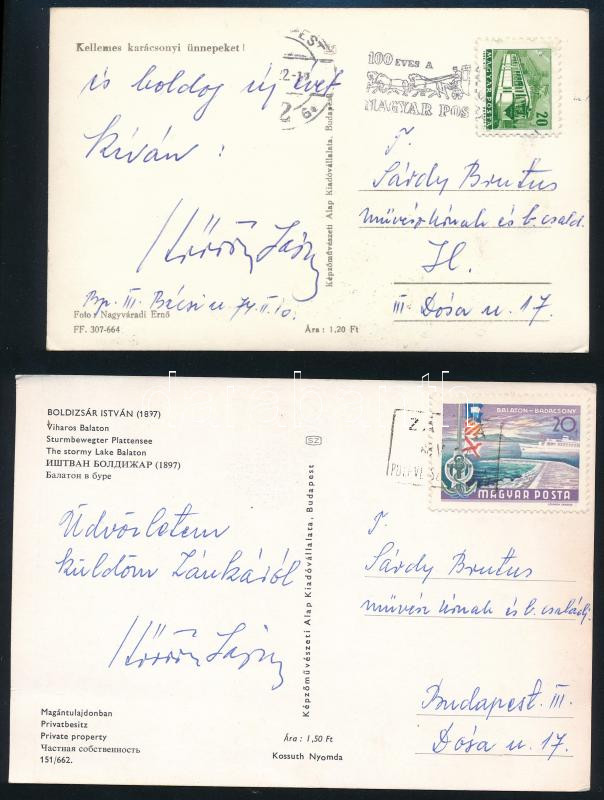 Kellemes karácsonyi ünnepeket !
és boldog új évet
kíván :
Kőrösi Lajos
Bp. III. Bécsi u. 74. II. 10.
Foto : Nagyváradi Ernő
FF. 307-664
Ára : 1,20 Ft
Képzőművészeti Alap Kiadóvállalata, Budapest
100 ÉVES A
MAGYAR POS
MAGYAR POSTA
20
T.
Sárdy Brutus
művész úrnak és b. család.
III. Dósa u. 17.
BOLDIZSÁR ISTVÁN (1897)
Viharos Balaton
Sturmbewegter Plattensee
The stormy Lake Balaton
ИШТВАН БОЛДИЖАР (1897)
Балатон в буре
Üdvözletem
küldöm Zánkáról
Magántulajdonban
Privatbesitz
Private property
Частная собственность
151/662.
Ára : 1,50 Ft
Kossuth Nyomda
SZ
Képzőművészeti Alap Kiadóvállalata, Budapest
BALATON - BADACSONY
20
MAGYAR POSTA
T.
Sárdy Brutus
művész úrnak és b. családj.
Budapest. III.
Dósa u. 17.